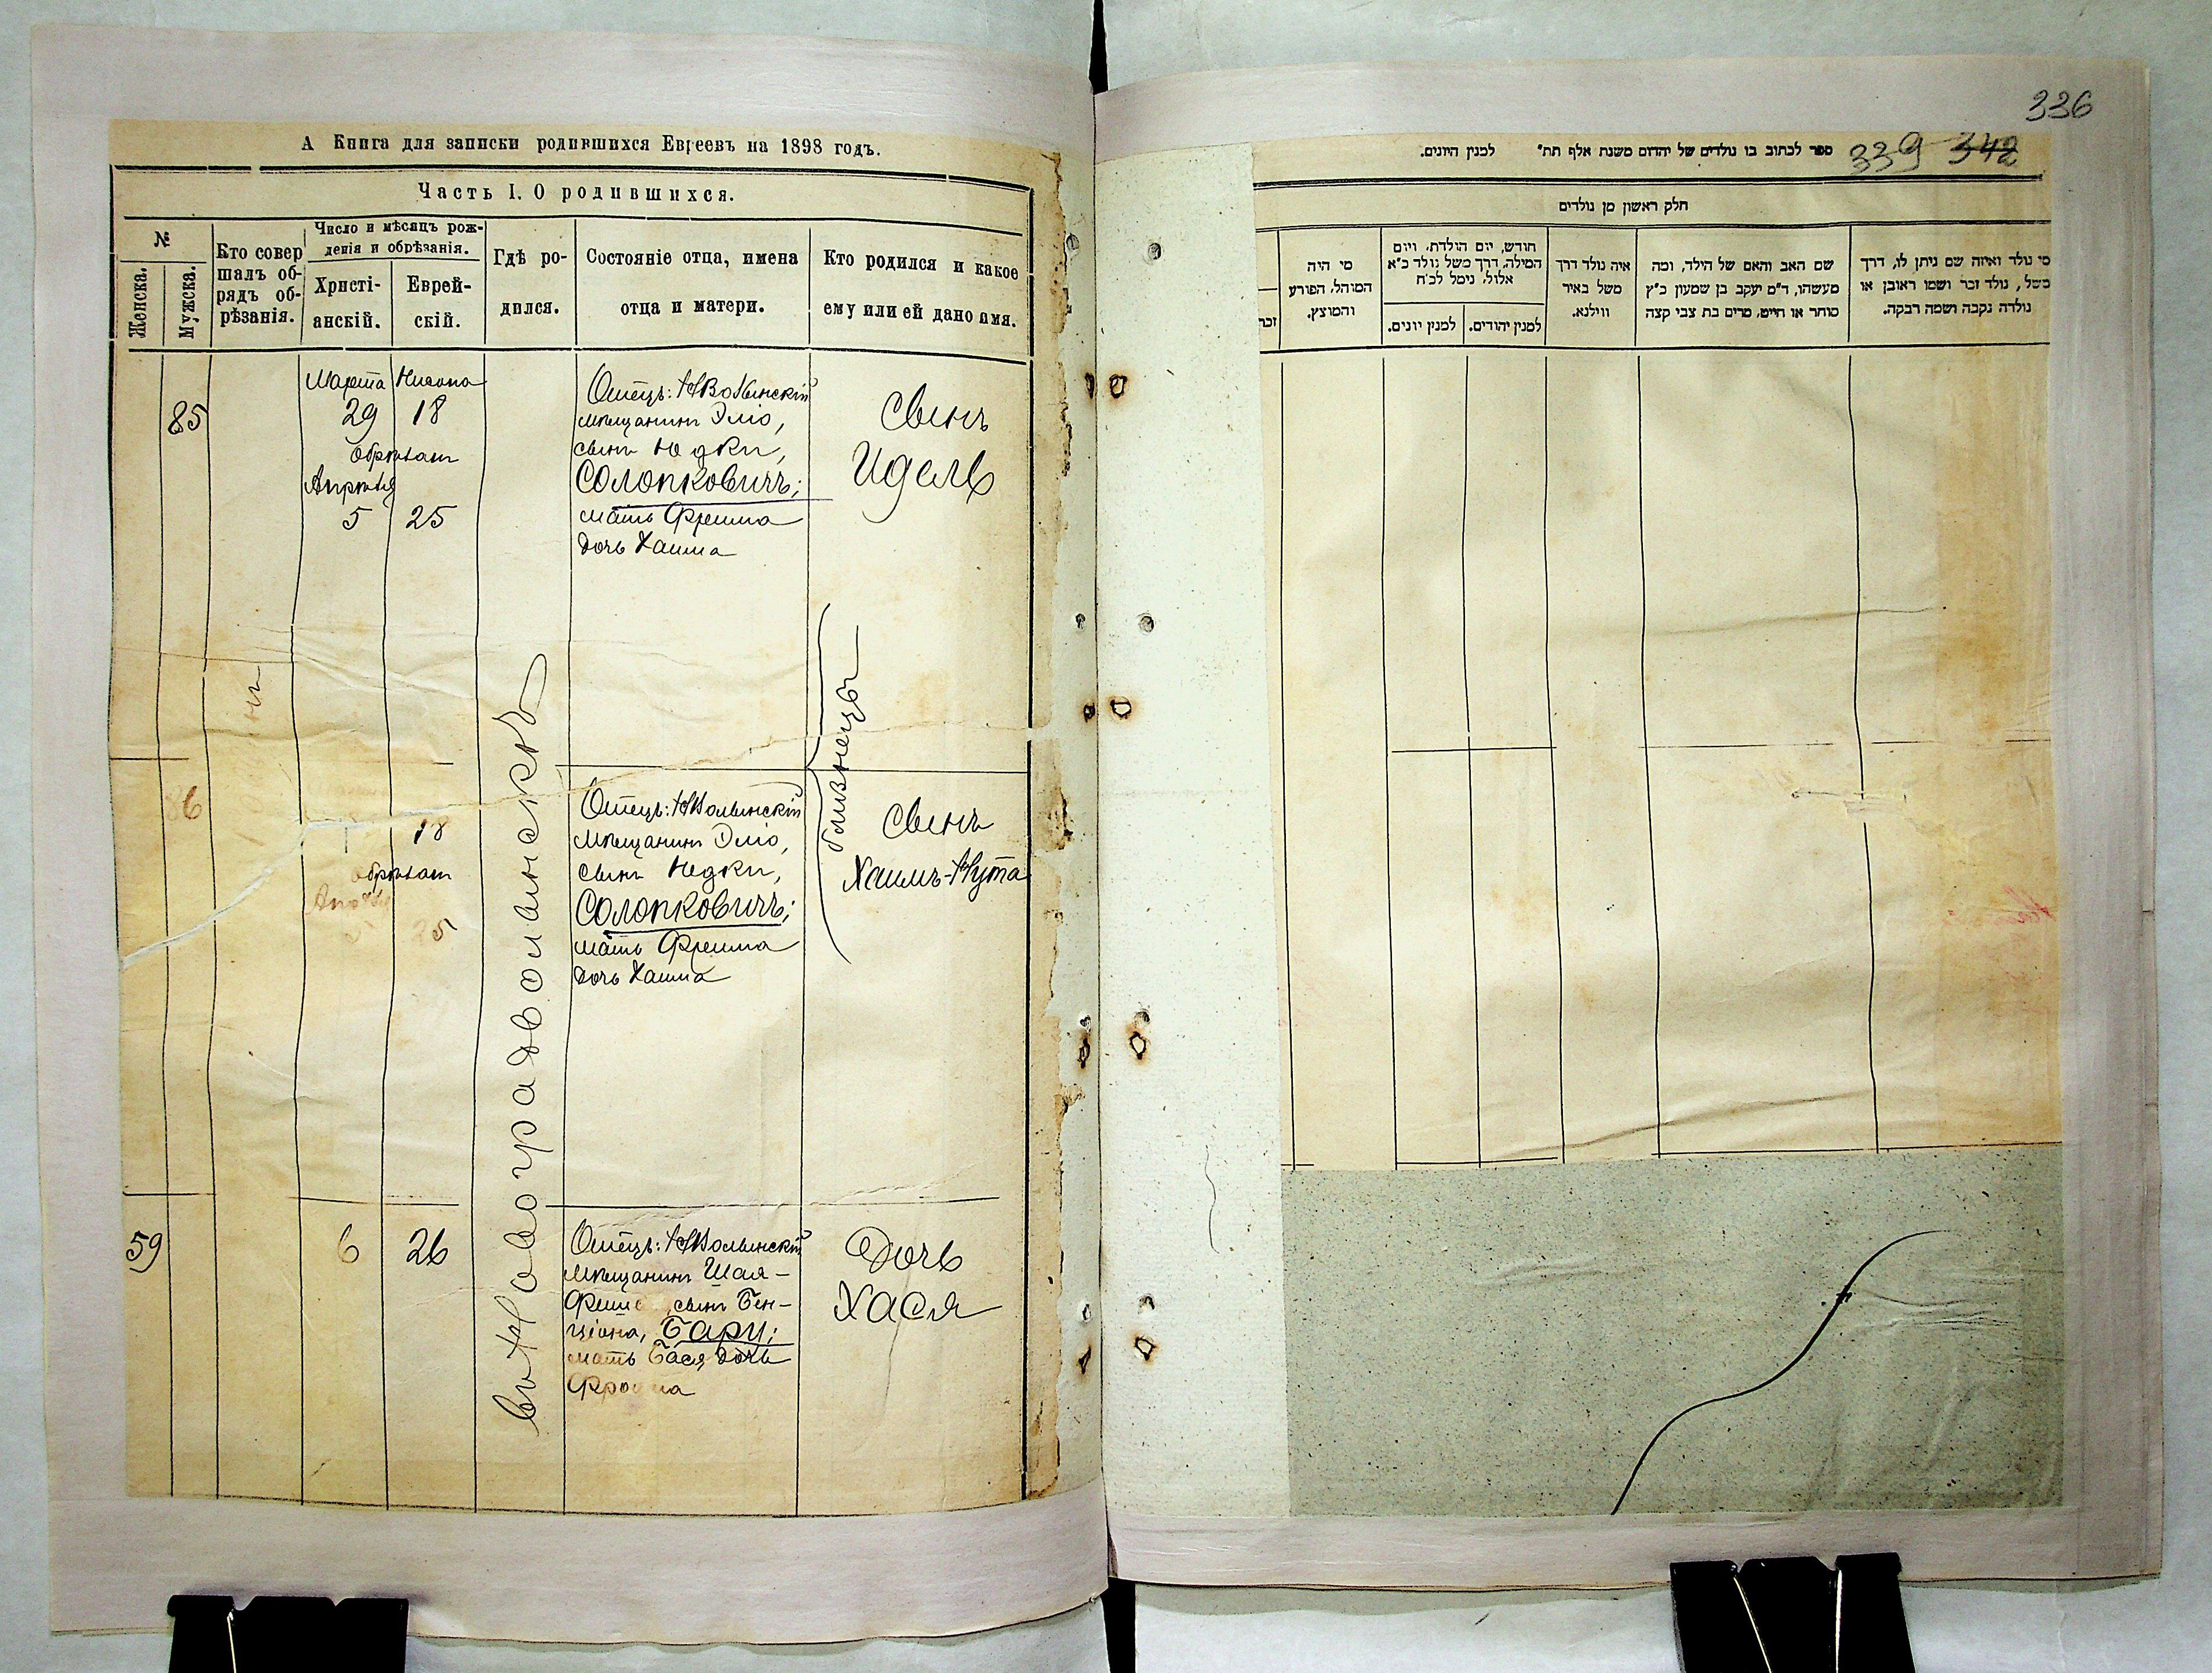 А Книга для записки родившихся Евреевъ на 1898 годъ.
Часть I. О родившихся.
№
Женска.
Мужска.
Кто совер
шалъ об-
рядъ об-
рѣзанія.
Число и мѣсяцъ рож-
денія и обрѣзанія.
Христі-
анскій.
Еврей-
скій.
Гдѣ ро-
дился.
Состояніе отца, имена
отца и матери.
Кто родился и какое
ему или ей дано имя.
85
Марта Нисона
29 18
обрѣзанъ
Апрѣля
5 25
Отецъ: НВолынскій
мѣщанинъ Эліо,
сынъ Юдки,
Солопковичъ;
мать Фрейма
дочь Хаима
Сынъ
Идель
близнецы
86
18
обрѣзанъ
Апрѣля
5 25
Отецъ: НВолынскій
мѣщанинъ Эліо,
сынъ Юдки,
Солопковичъ;
мать Фрейма
дочь Хаима
Сынъ
Хаимъ-Нута
въ Новоградволынскѣ
59
6 26
Отецъ: НВолынскій
мѣщанинъ Шая-
сынъ Бен-
ціона, Бару;
мать Бася дочь
Дочь
Хася
336
339 342
ספר לכתוב בו נולדים של יהדום משנת אלף תת״ למנין היונים.
חלק ראשון מן נולדים
זכר
מי היה
המוהל, הפורע
והמוצץ.
חודש, יום הולדת, ויום
המילה, דרך משל נולד כ״א
אלול, נימל לכ״ח
למנין יונים.
למנין יהודים.
איה נולד דרך
משל באיר
ווילנא.
שם האב והאם של הילד, ומה
מעשהו, ד״מ יעקב בן שמעון כ״ץ
סוחר או חייט, מרים בת צבי קצה
מי נולד ואיזה שם ניתן לו, דרך
משל, נולד זכר ושמו ראובן או
נולדה נקבה ושמה רבקה.